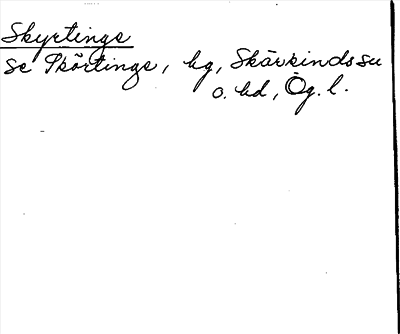 Skyrtinge
se Skörtinge, hg, Skärkinds sn
o. hd, Ög. l.